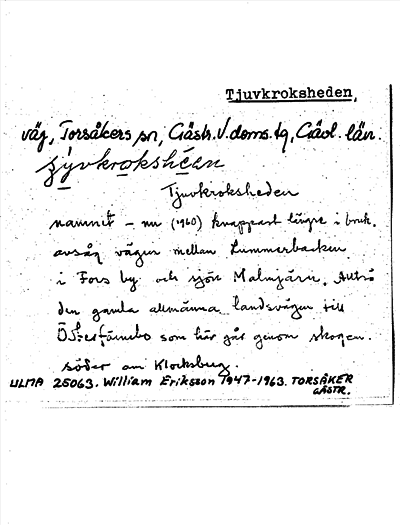 Tjuvkroksheden,
väg, Torsåkers sn, Gästr. V. doms. tg, Gävl. län.
Tjuvkroksheden
namnet – nu (1960) knappast längre i bruk.
avsåg vägen mellan Lummerbacken
i Fors by och sjön Malmjärn. Alltså
den gamla allmänna landsvägen till
Österfärnebo som här går genom skogen
söder om Klocksberg.
ULMA 25063. William Eriksson 1947-1963. TORSÅKER
GÄSTR.